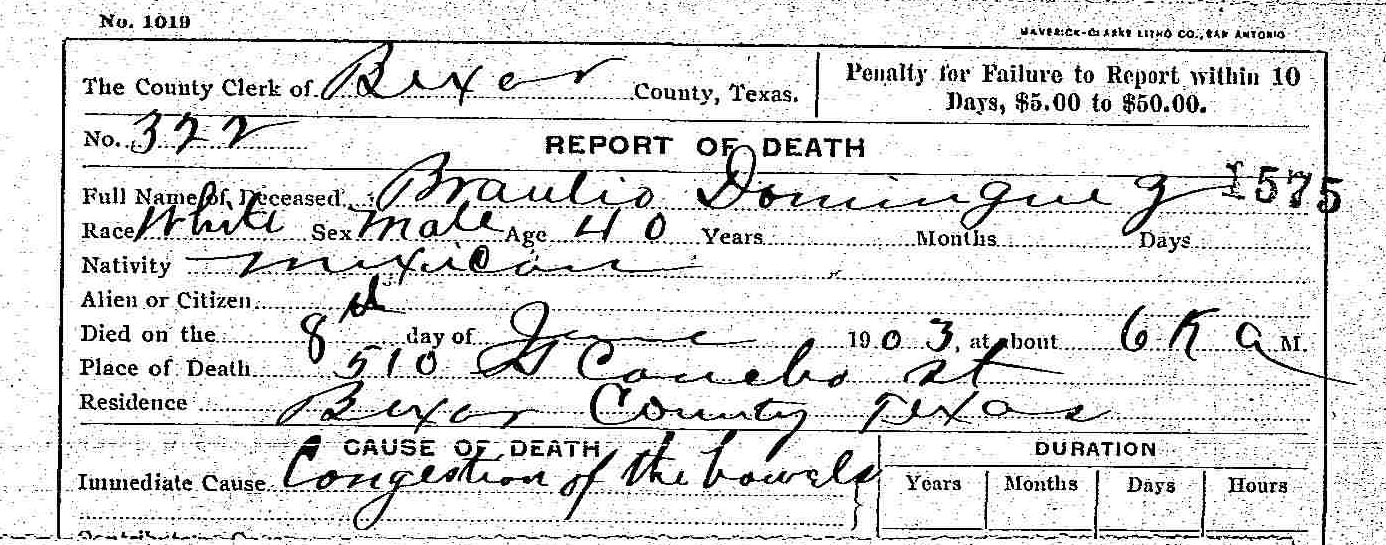 No. 1019
MAVERICK-CLARKE LITHO CO., SAN ANTONIO
The County Clerk of Bexar County, Texas.
Penalty for Failure to Report within 10
Days, $5.00 to $50.00.
No. 322
REPORT OF DEATH
Full Name of Deceased Braulio Dominguez 1575
Race White Sex Male Age 40 Years Months Days
Nativity Mexican
Alien or Citizen
Died on the 8th day of June 1903, at about 6 A M.
Place of Death 510 Concho st
Residence Bexar County Texas
CAUSE OF DEATH
DURATION
Immediate Cause Congestion of the bowels
Years Months Days Hours